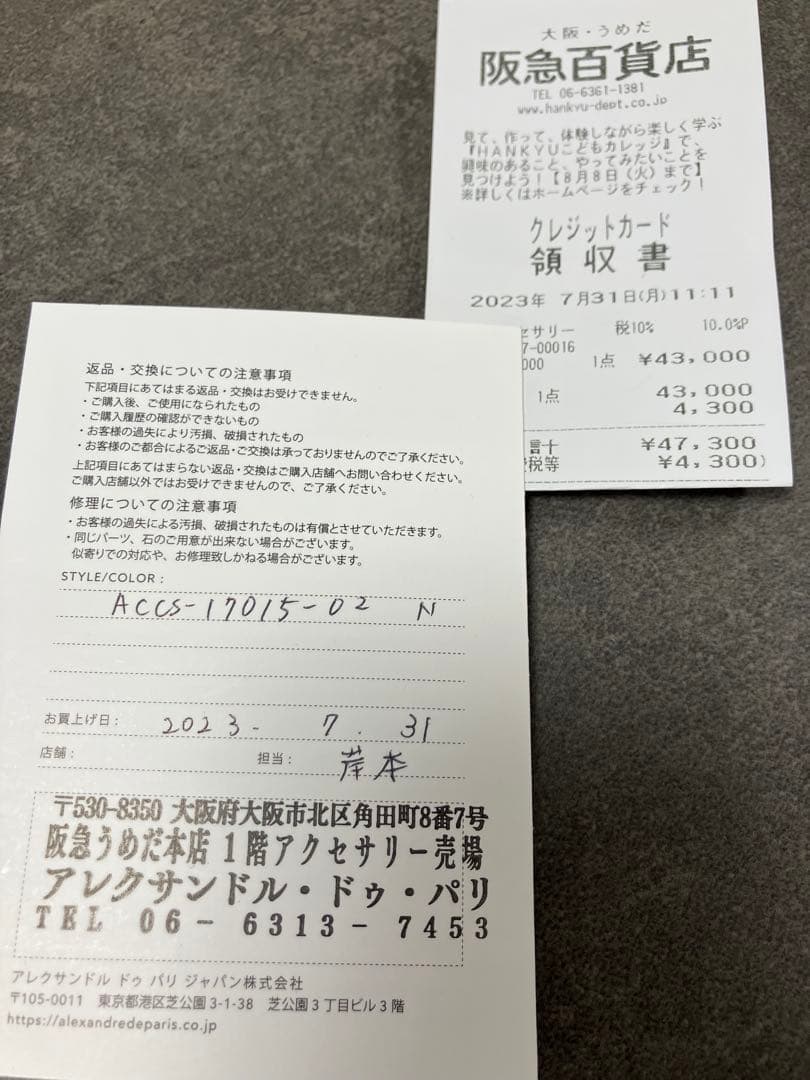 大阪・うめだ
阪急百貨店
TEL 06-6361-1381
www.hankyu-dept.co.jp
見て、作って、体験しながら楽しく学ぶ
『HANKYUこどもカレッジ』で、
興味のあること、やってみたいことを
見つけよう!【8月8日(火)まで】
※詳しくはホームページをチェック!
クレジットカード
領収書
2023年 7月31日(月)11:11
セサリー 税10% 10.0%P
7-00016
000 1点 ¥43,000
1点 43,000
4,300
計 ¥47,300
税等 ¥4,300)
返品・交換についての注意事項
下記項目にあてはまる返品・交換はお受けできません。
・ご購入後、ご使用になられたもの
・ご購入履歴の確認ができないもの
・お客様の過失により汚損、破損されたもの
・お客様のご都合によるご返品・ご交換は承っておりませんのでご了承ください。
上記項目にあてはまらない返品・交換はご購入店舗へお問い合わせください。
ご購入店舗以外ではお受けできませんので、ご了承ください。
修理についての注意事項
・お客様の過失による汚損、破損されたものは有償とさせていただきます。
・同じパーツ、石のご用意が出来ない場合がございます。
似寄りでの対応や、お修理致しかねる場合がございます。
STYLE/COLOR:
ACCS-17015-02 N
お買上げ日: 2023- 7. 31
店舗: 担当: 岸本
〒530-8350 大阪府大阪市北区角田町8番7号
阪急うめだ本店1階アクセサリー売場
アレクサンドル・ドゥ・パリ
TEL 06-6313-7453
アレクサンドル ドゥ パリ ジャパン株式会社
〒105-0011 東京都港区芝公園3-1-38 芝公園3丁目ビル3階
https://alexandredeparis.co.jp